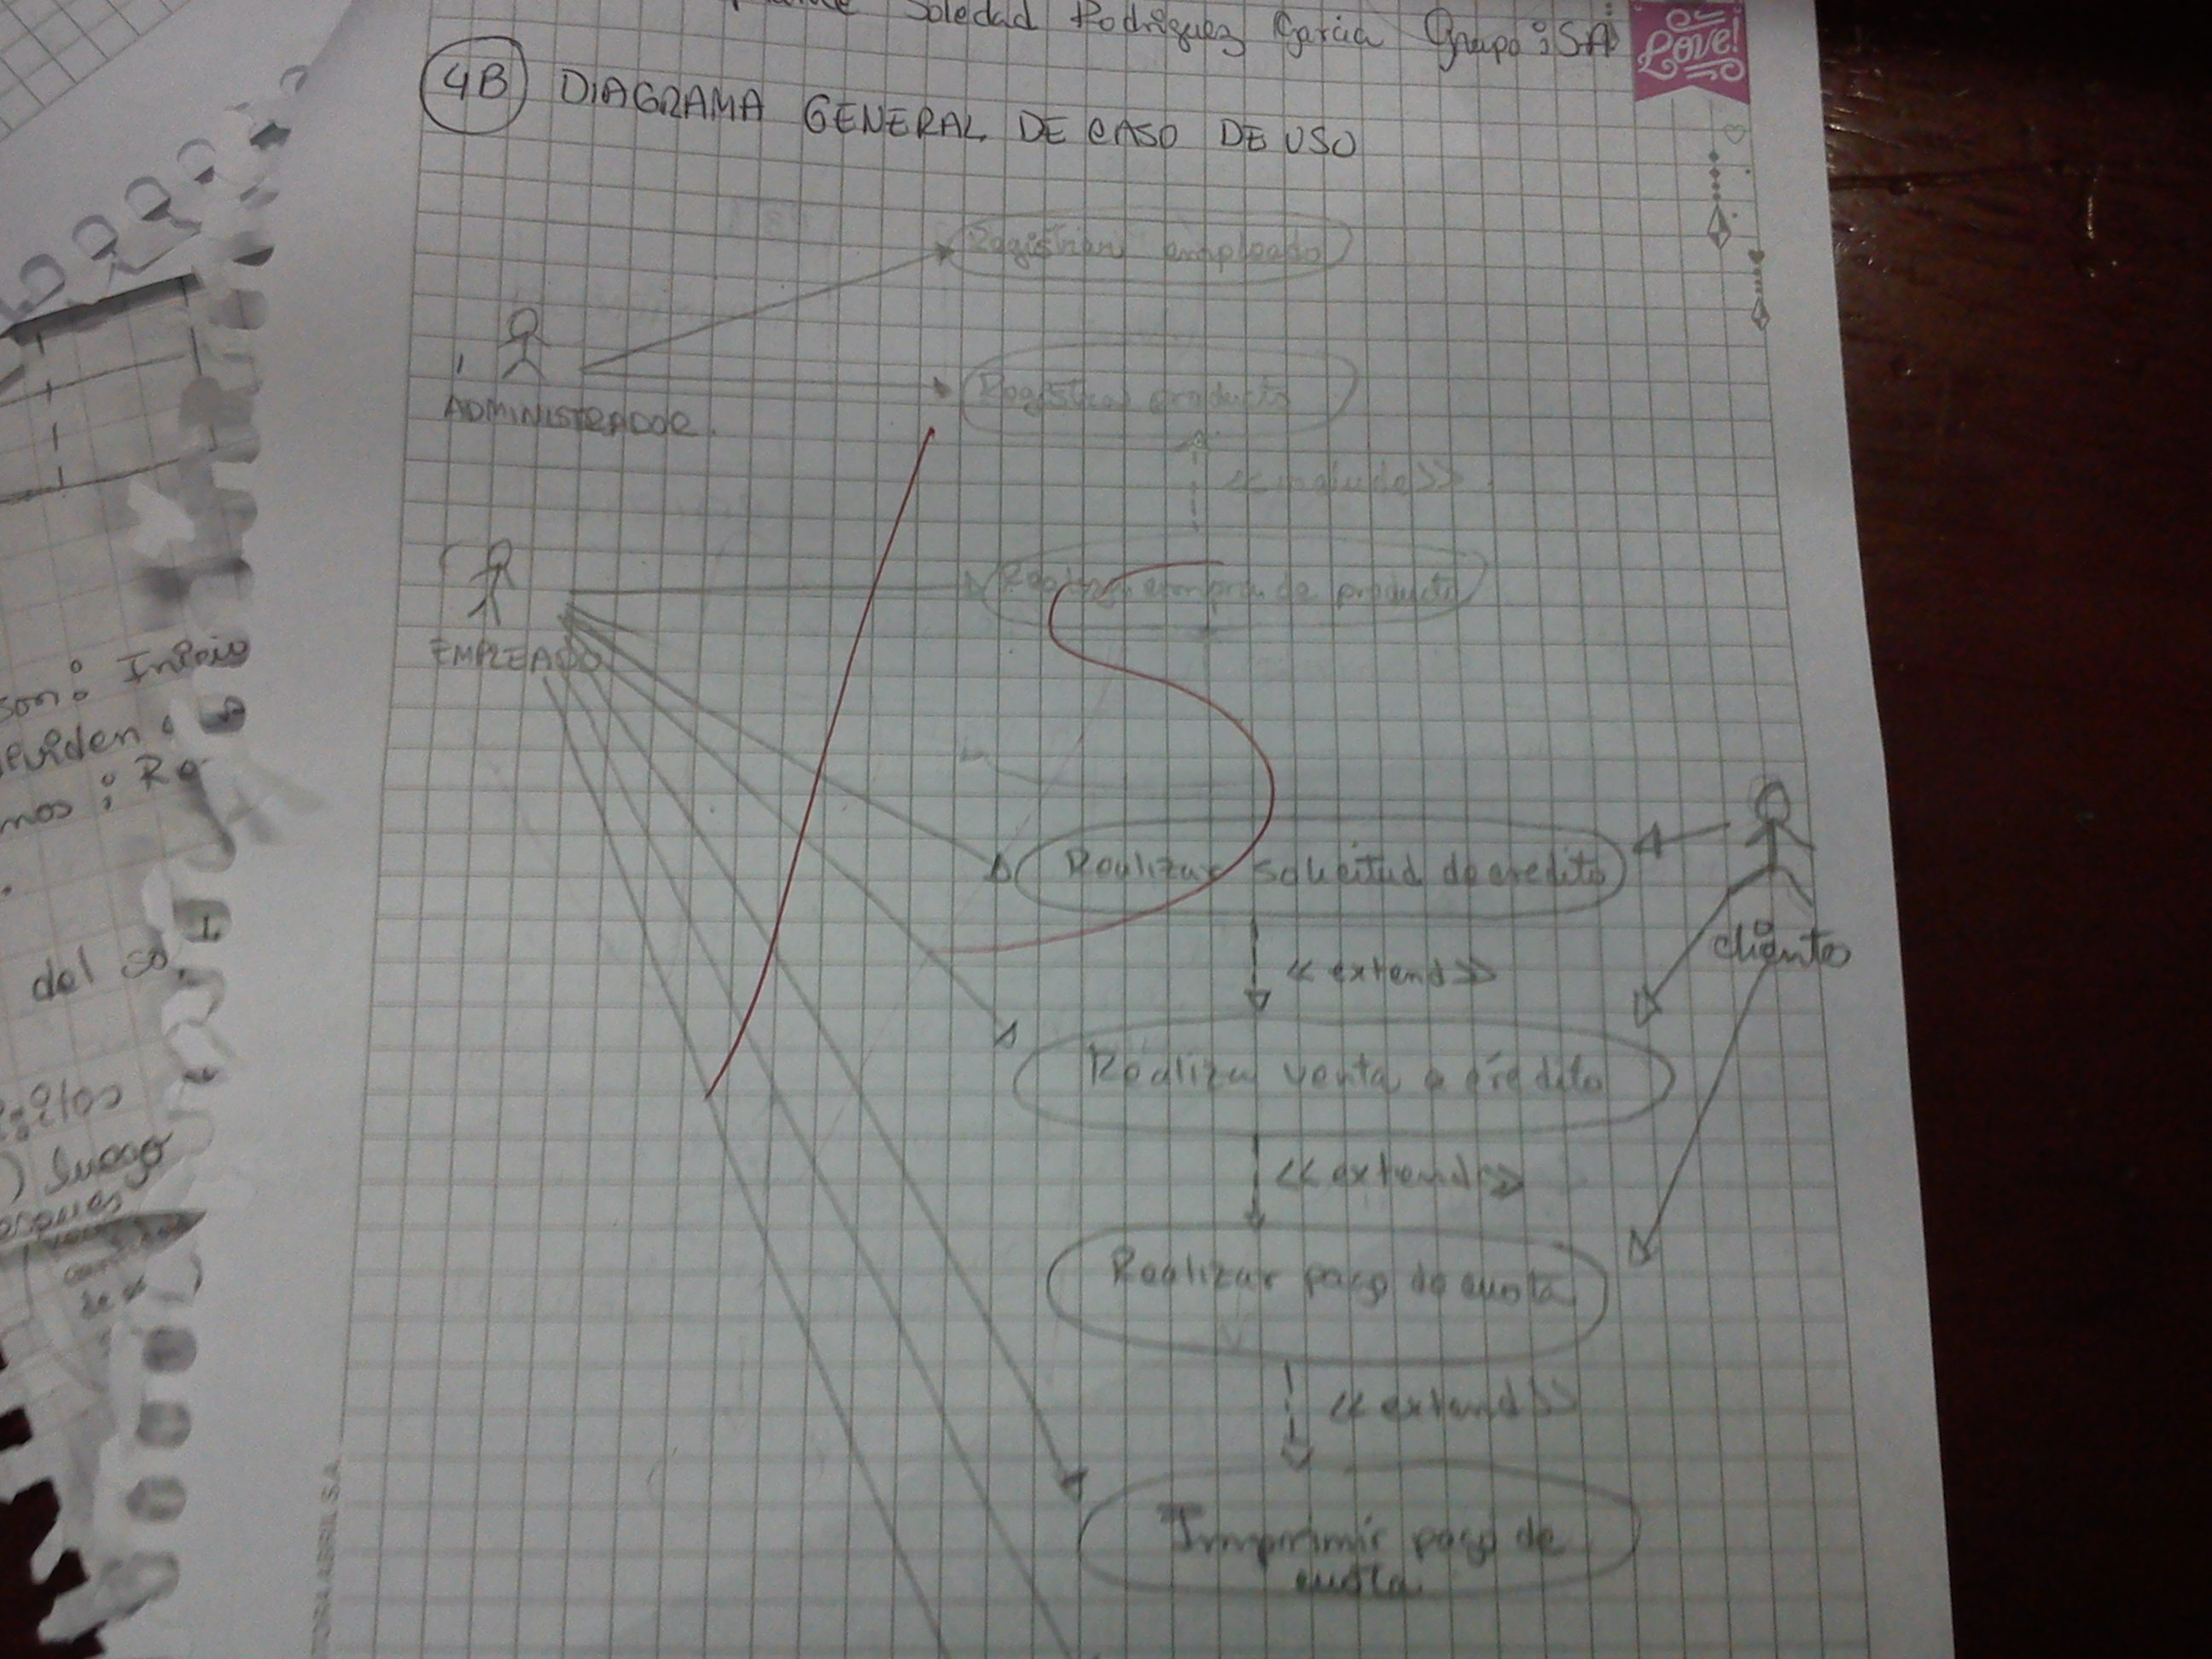 Soledad Rodriguez Garcia Grupo: SA
Love!
4B DIAGRAMA GENERAL DE CASO DE USO
Registrar empleado
ADMINISTRADOR.
Registrar producto
<<include>>
compra de producto
EMPLEADO
Realizar solicitud de credito
cliente
<<extend>>
Realiza venta a crédito
<<extend>>
Realizar pago de cuota
<<extend>>
Imprimir pago de
cuota
son: Inicio
mos: Re
del so
) luego